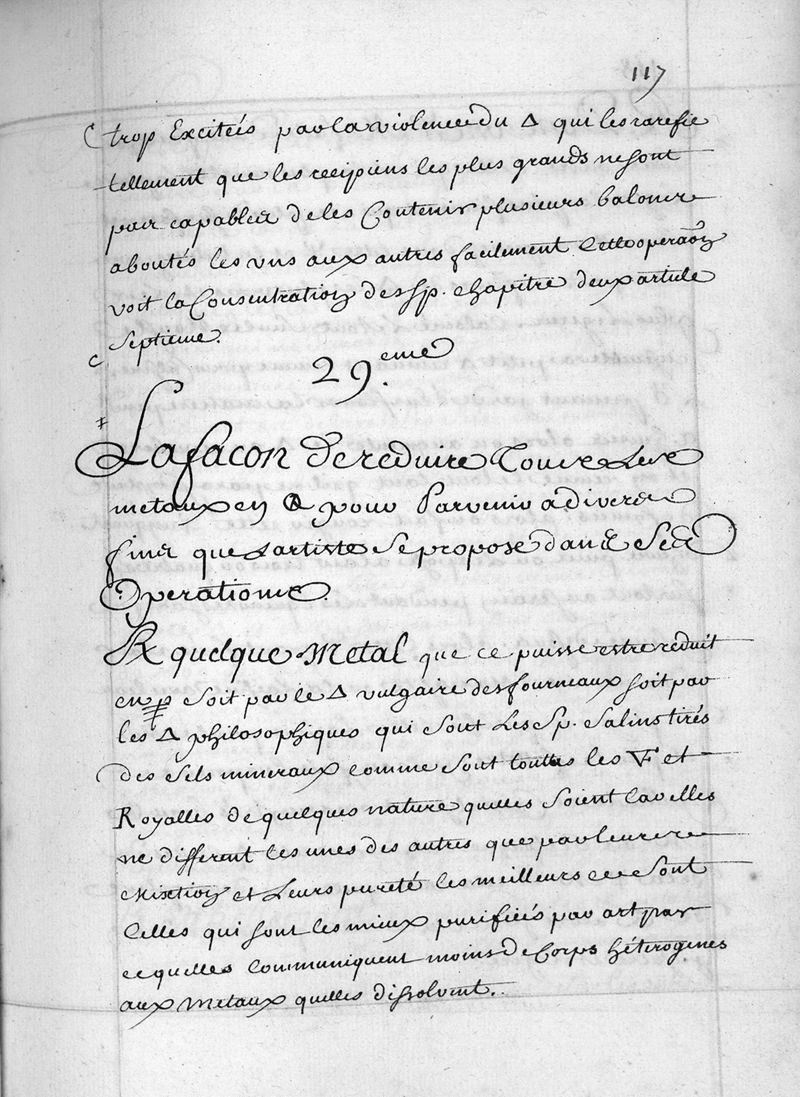 117
trop Excitées par la violence du 🜂 qui les rarefie
tellement que les recipiens les plus grands ne sont
pas capables de les Contenir plusieurs balons
aboutés les uns aux autres facilement Cette operaõn
voit la Consentration des sp. chapitre deux article
septieme.
29.eme
La facon de reduire Tous Les
metaux en pour Parvenir a divers
fins que Lartiste se propose dans Ses
Operations.
℞ quelque Metal que ce puisse estre reduit
en soit par le 🜂 vulgaire des fourneaux soit par
les 🜂 philosophiques qui sont Les Sp. Salins tirés
des sels mineraux comme sont touttes les et
Royalles de quelques nature quelles soient car elles
ne different les unes des autres que par leurs
Mixtion et Leurs pureté les meilleurs sont
Celles qui sont les mieux purifiées par art par
ce quelles communiquent moins de Corps hétérogenes
aux Metaux quelles dissolvent.